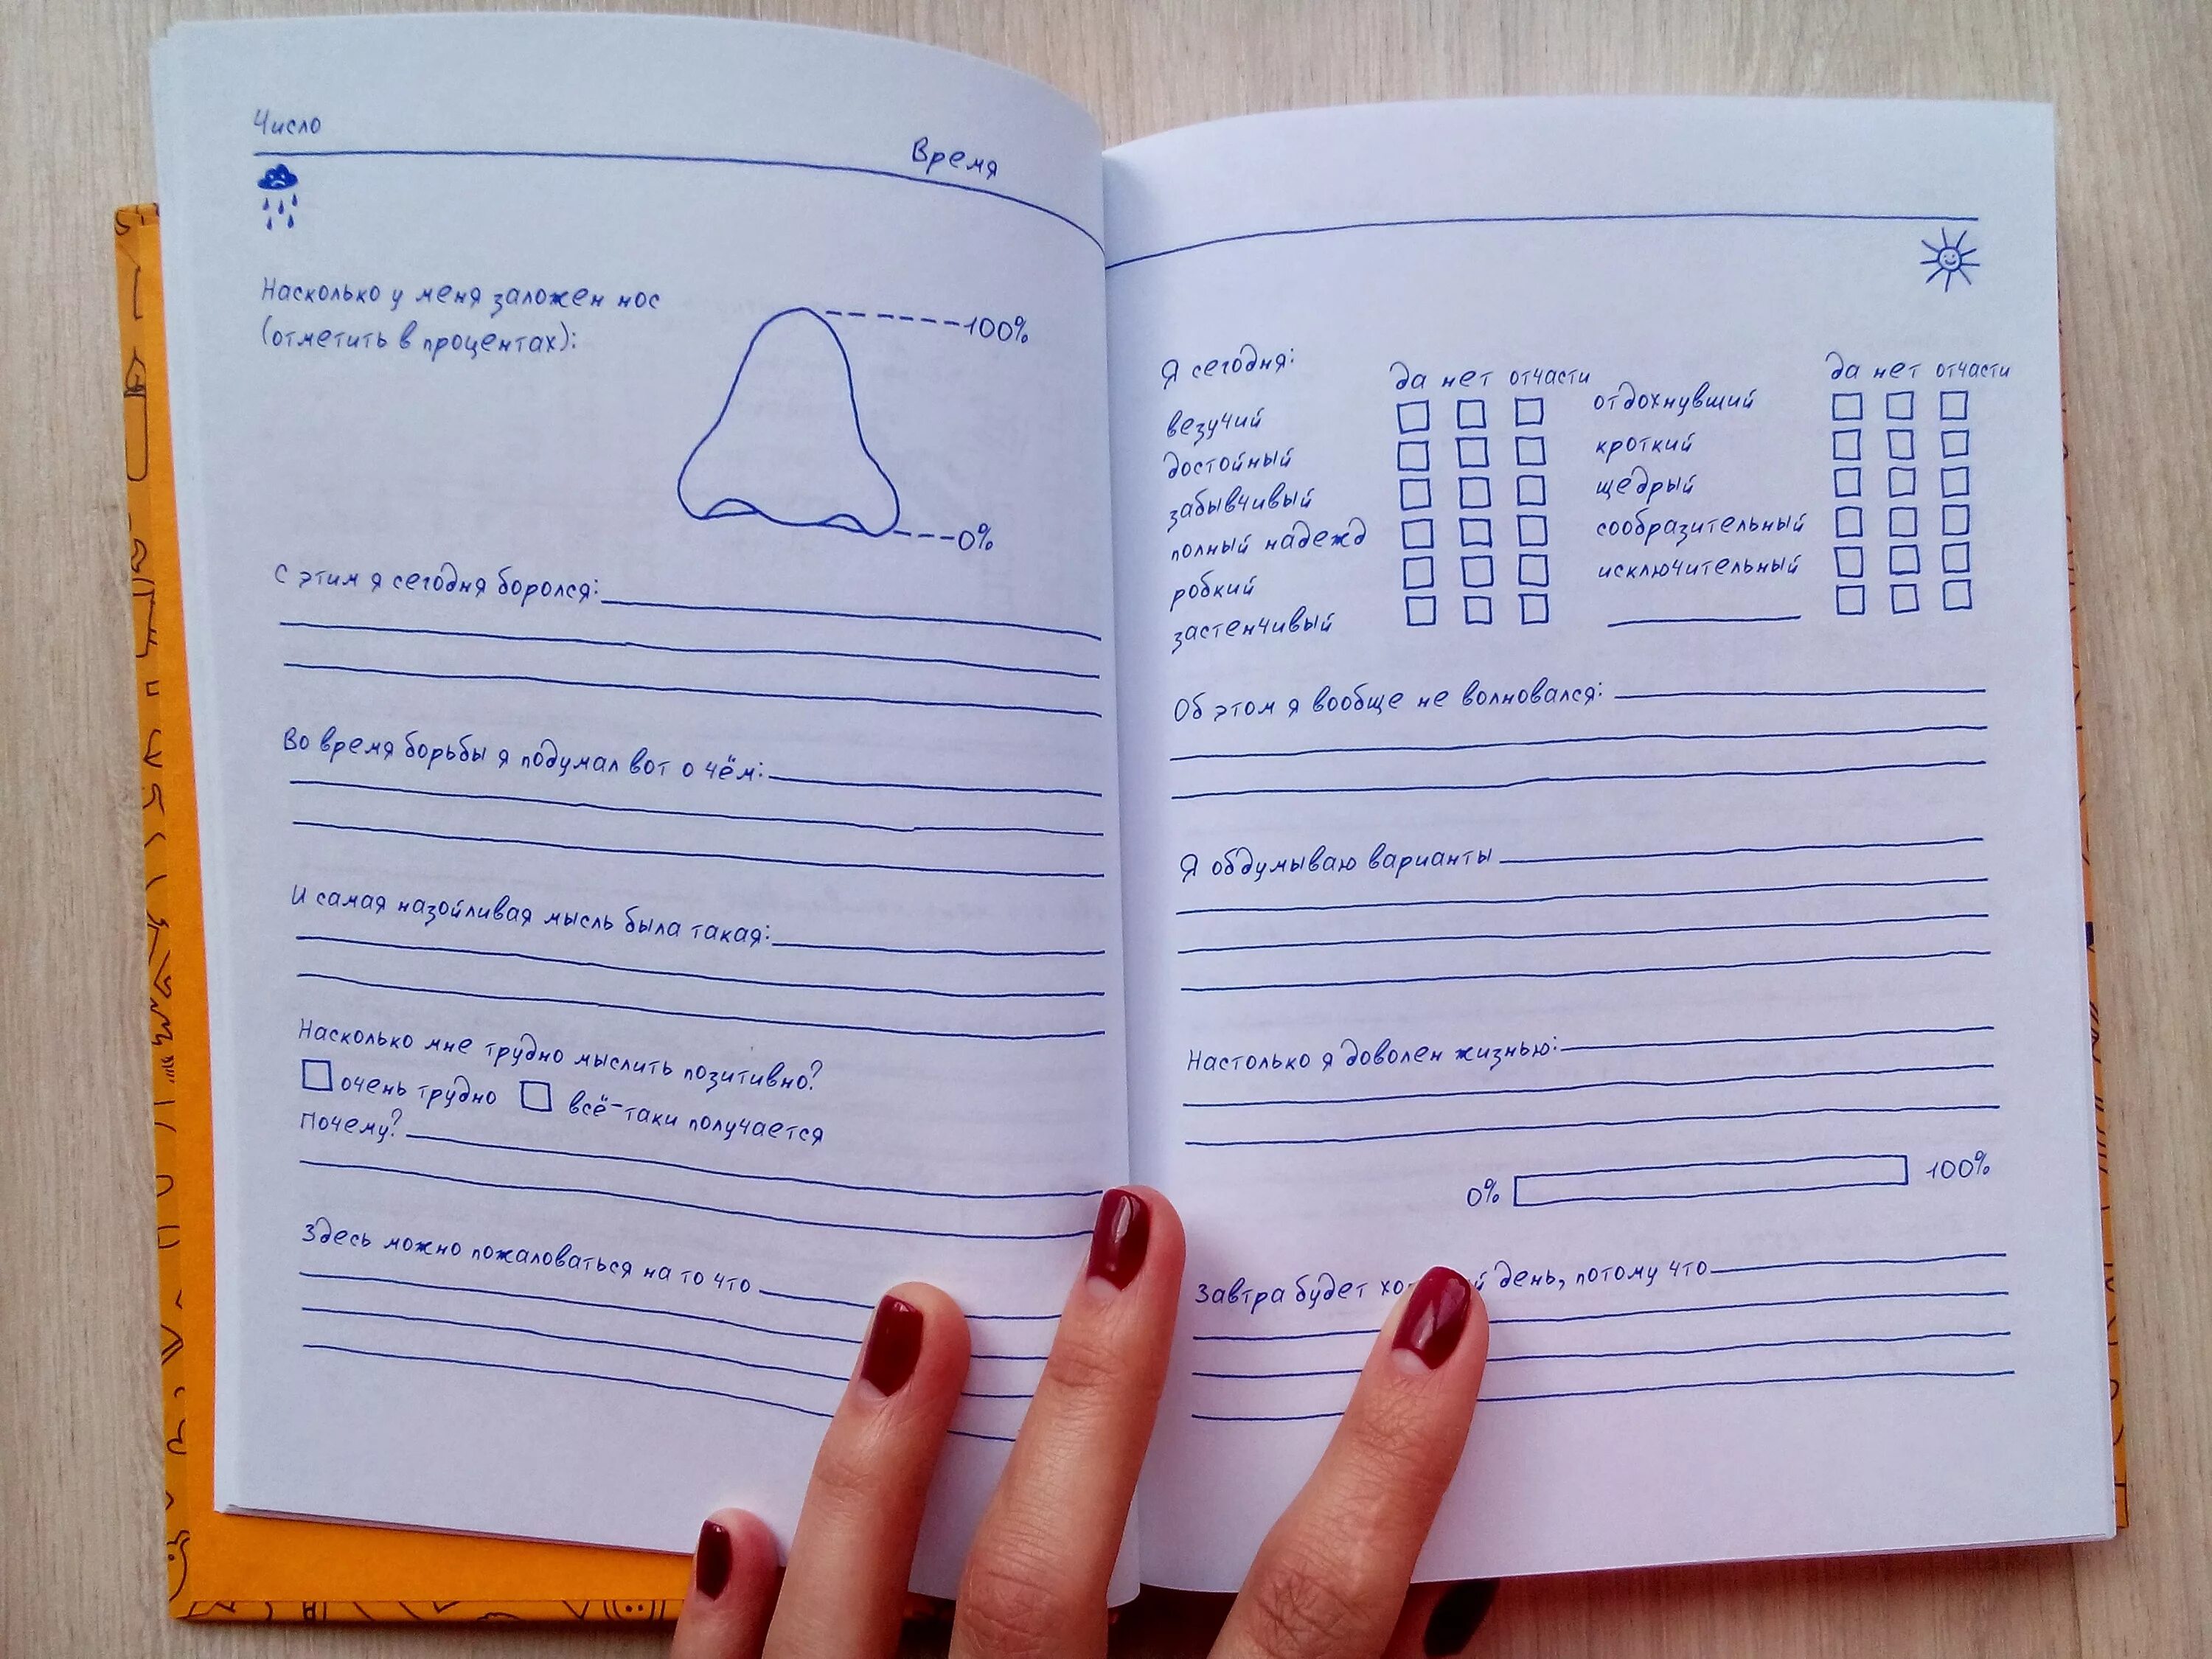 Число
Время
Насколько у меня заложен нос
(отметить в процентах):
100%
0%
С этим я сегодня боролся:
Во время борьбы я подумал вот о чём:
И самая назойливая мысль была такая:
Насколько мне трудно мыслить позитивно?
очень трудно всё-таки получается
Почему?
Здесь можно пожаловаться на то что
Я сегодня:
да нет отчасти
везучий
достойный
забывчивый
полный надежд
робкий
застенчивый
да нет отчасти
отдохнувший
кроткий
щедрый
сообразительный
исключительный
Об этом я вообще не волновался:
Я обдумываю варианты
Настолько я доволен жизнью:
0% 100%
Завтра будет день, потому что